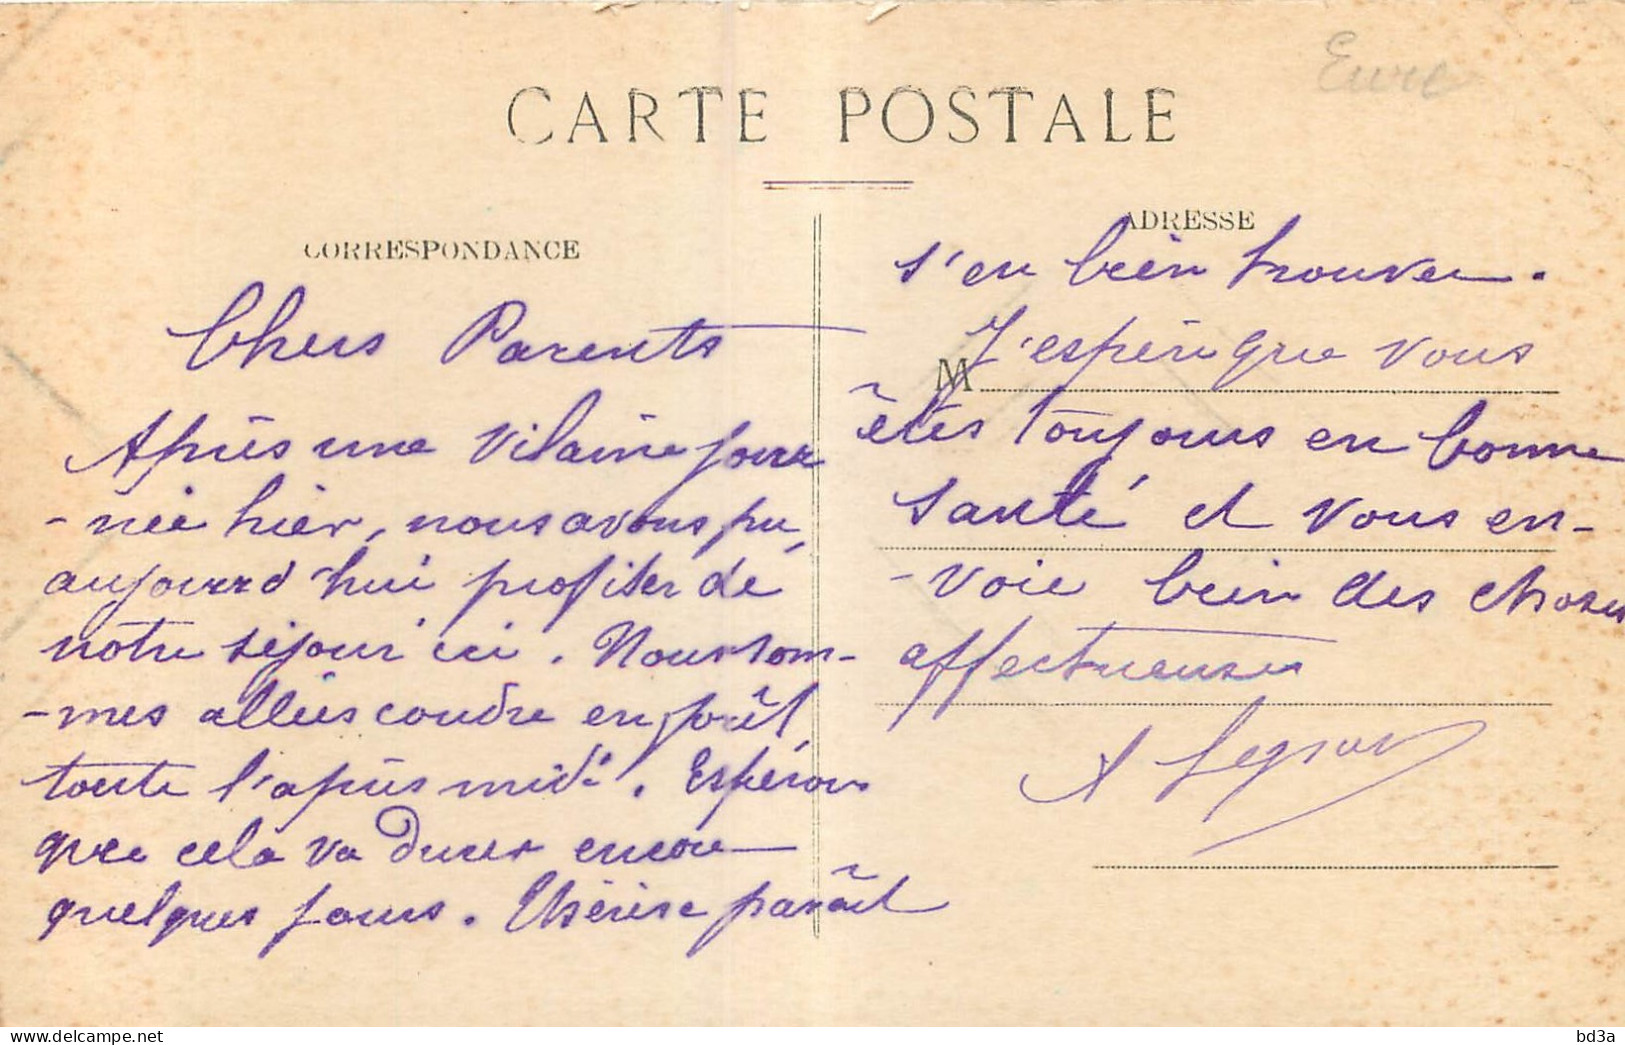 Eure
CARTE POSTALE
CORRESPONDANCE
Chers Parents
Après une vilaine jour
-née hier, nous avons pu,
aujourd'hui profiter de
notre séjour ici. Nous som-
-mes allées coudre en forêt
toute l'après midi. Espérons
que cela va durer encore
quelques jours. Thérèse parâit
ADRESSE
s'en bien trouver.
M
J'espère que vous
êtes toujours en bonne
santé et vous en-
-voie bien des choses
affectueuses
A
delcampe.net
bd3a